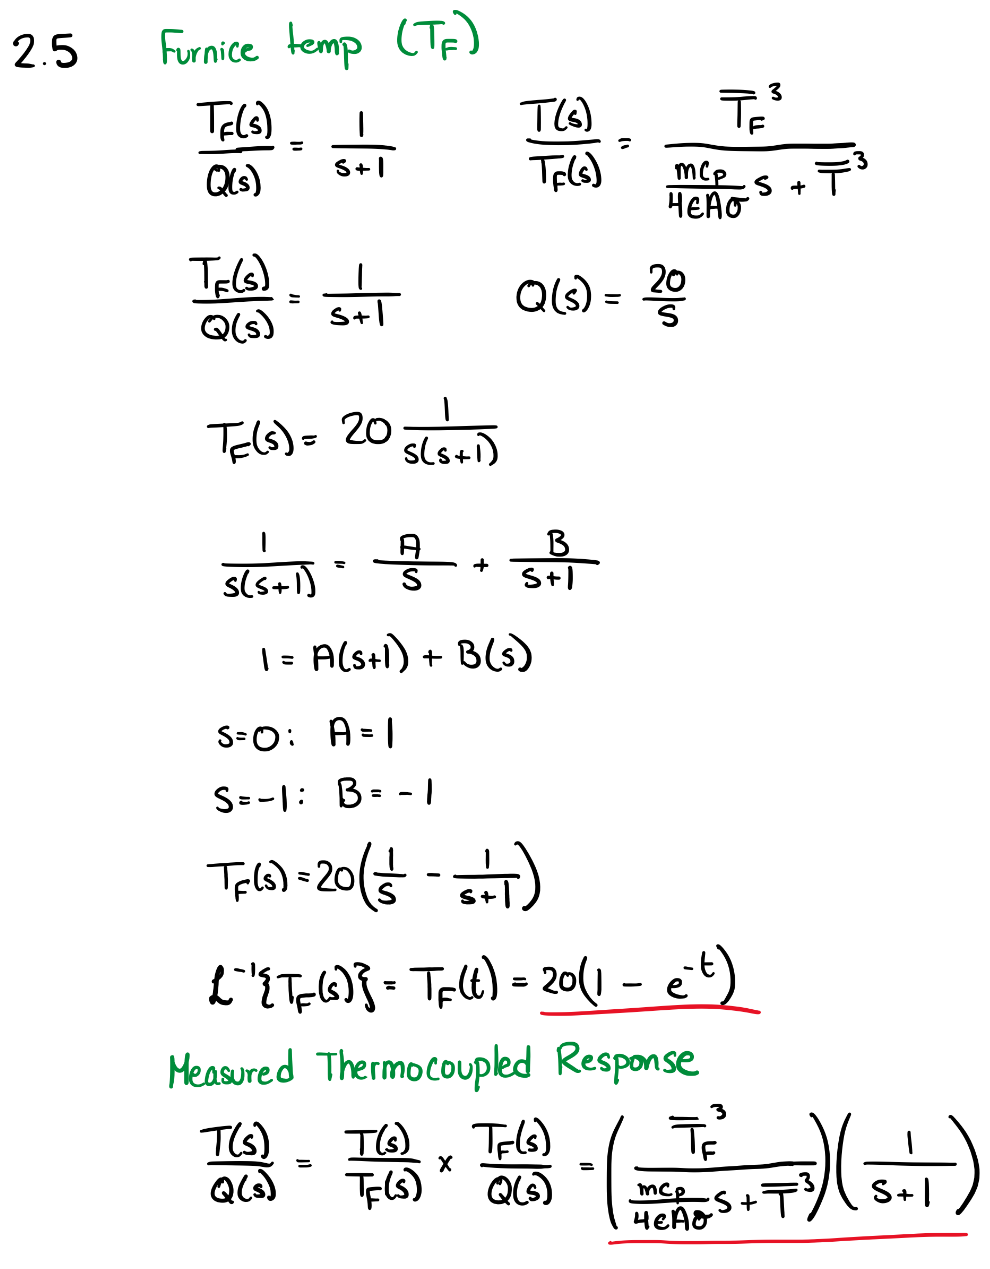 2.5 Furnice temp (T_F)
T_F(s)/Q(s) = 1/(s+1) T(s)/T_F(s) = T̿_F³/((mc_p/4ϵAσ)s + T̿³)
T_F(s)/Q(s) = 1/(s+1) Q(s) = 20/s
T_F(s) = 20 1/(s(s+1))
1/(s(s+1)) = A/s + B/(s+1)
1 = A(s+1) + B(s)
s=0: A=1
s=-1: B=-1
T_F(s) = 20(1/s - 1/(s+1))
ℒ⁻¹{T_F(s)} = T_F(t) = 20(1 - e^-t)
Measured Thermocoupled Response
T(s)/Q(s) = T(s)/T_F(s) x T_F(s)/Q(s) = (T̅_F³/((mc_p/4ϵAσ)s + T̿³))(1/(s+1))